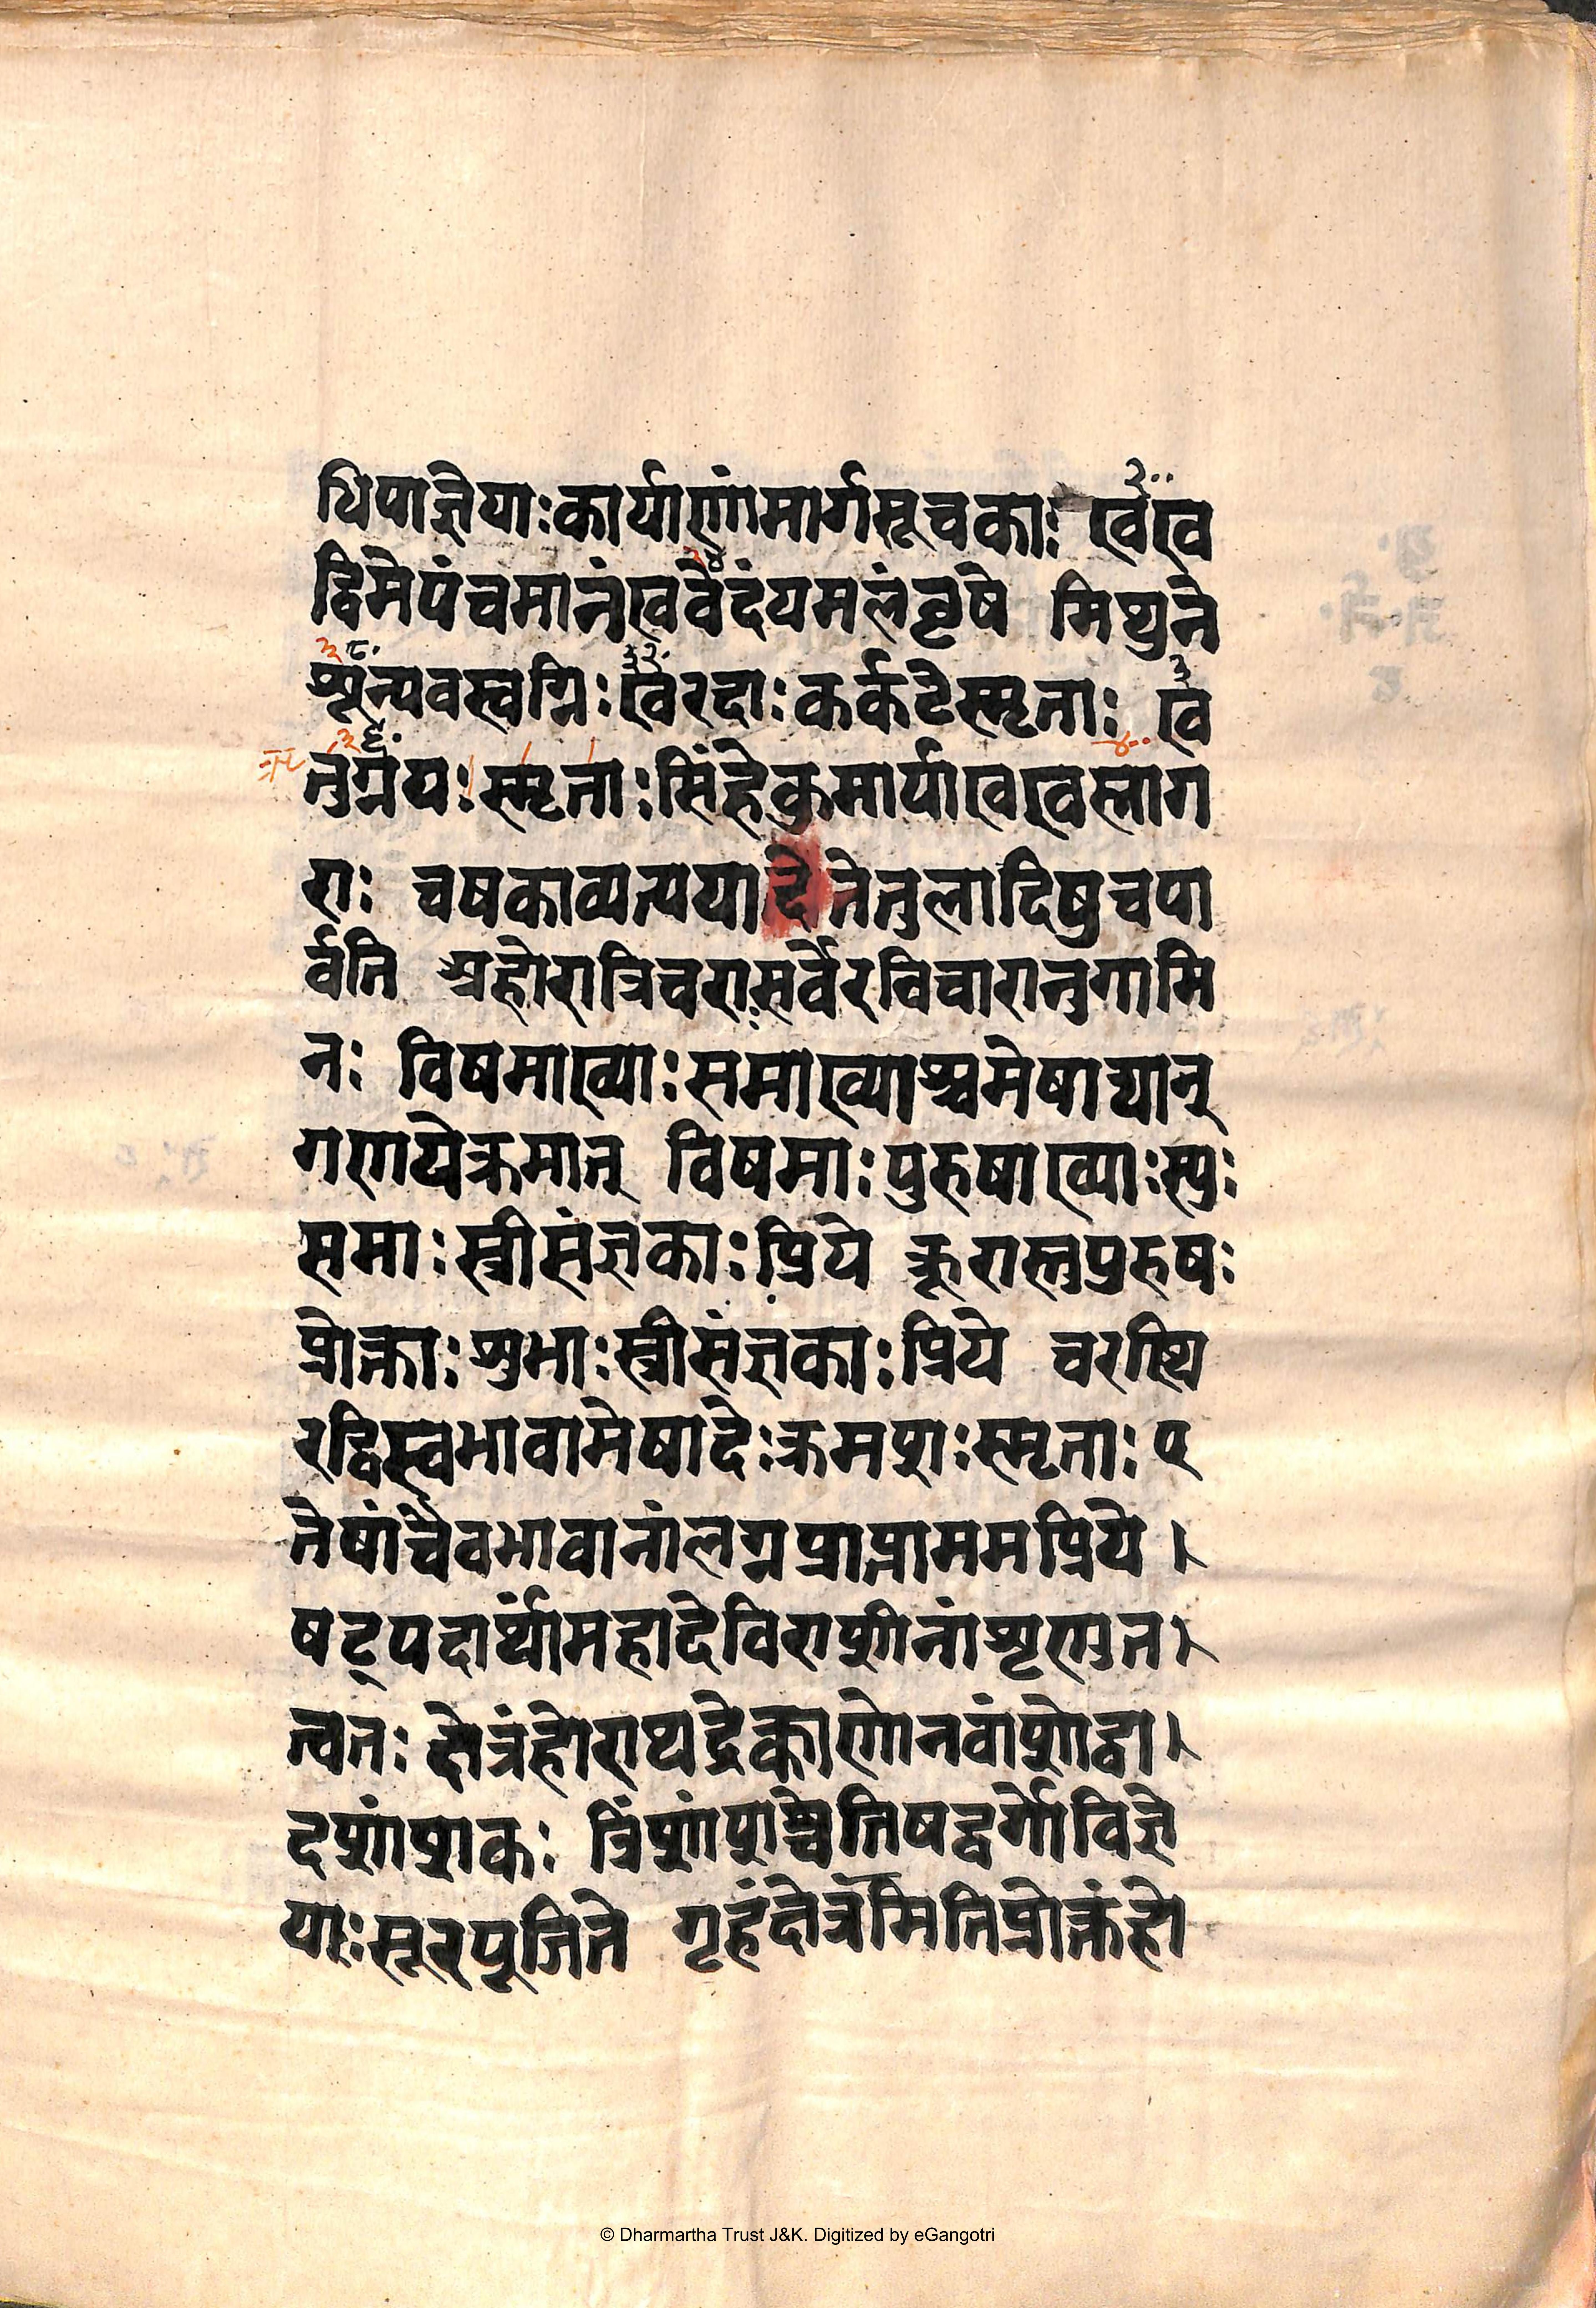 धिपाज्ञेयाः कार्याणां मार्गसूचकाः खेख
द्विमेपंचमानंखवेदंयमलंवृषे मिथुने
शून्यवस्वग्निः खेरदाः कर्कटेस्मृताः खे
तुग्नयः स्मृताः सिंहेकुमार्याखखसाग
राः चषकाव्यत्ययादेतेतुलादिषुचपा
र्वति अहोरात्रिचराःसर्वेरविचारानुगामि
नः विषमाख्याः समाख्याश्चमेषाद्यान्
गणयेक्रमात् विषमाः पुरुषाख्याः स्युः
समाः स्त्रीसंज्ञकाः प्रिये क्रूरास्तुपुरुषः
प्रोक्ताः शुभाः स्त्रीसंज्ञकाः प्रिये चरस्थि
रद्विस्वभावामेषादेः क्रमशः स्मृताः ए
तेषांचैवभावानांलग्नप्राप्तामममप्रिये ।
षट्पदार्थामहादेविराशीनांशृणुत।
त्वतः क्षेत्रंहोराथद्रेक्काणोनवांशोद्वा।
दशांशकः त्रिंशांशश्चेतिषड्वर्गोविज्ञे
याः सूरपूजिते गृहंक्षेत्रमितिप्रोक्तंहो
© Dharmartha Trust J&K. Digitized by eGangotri